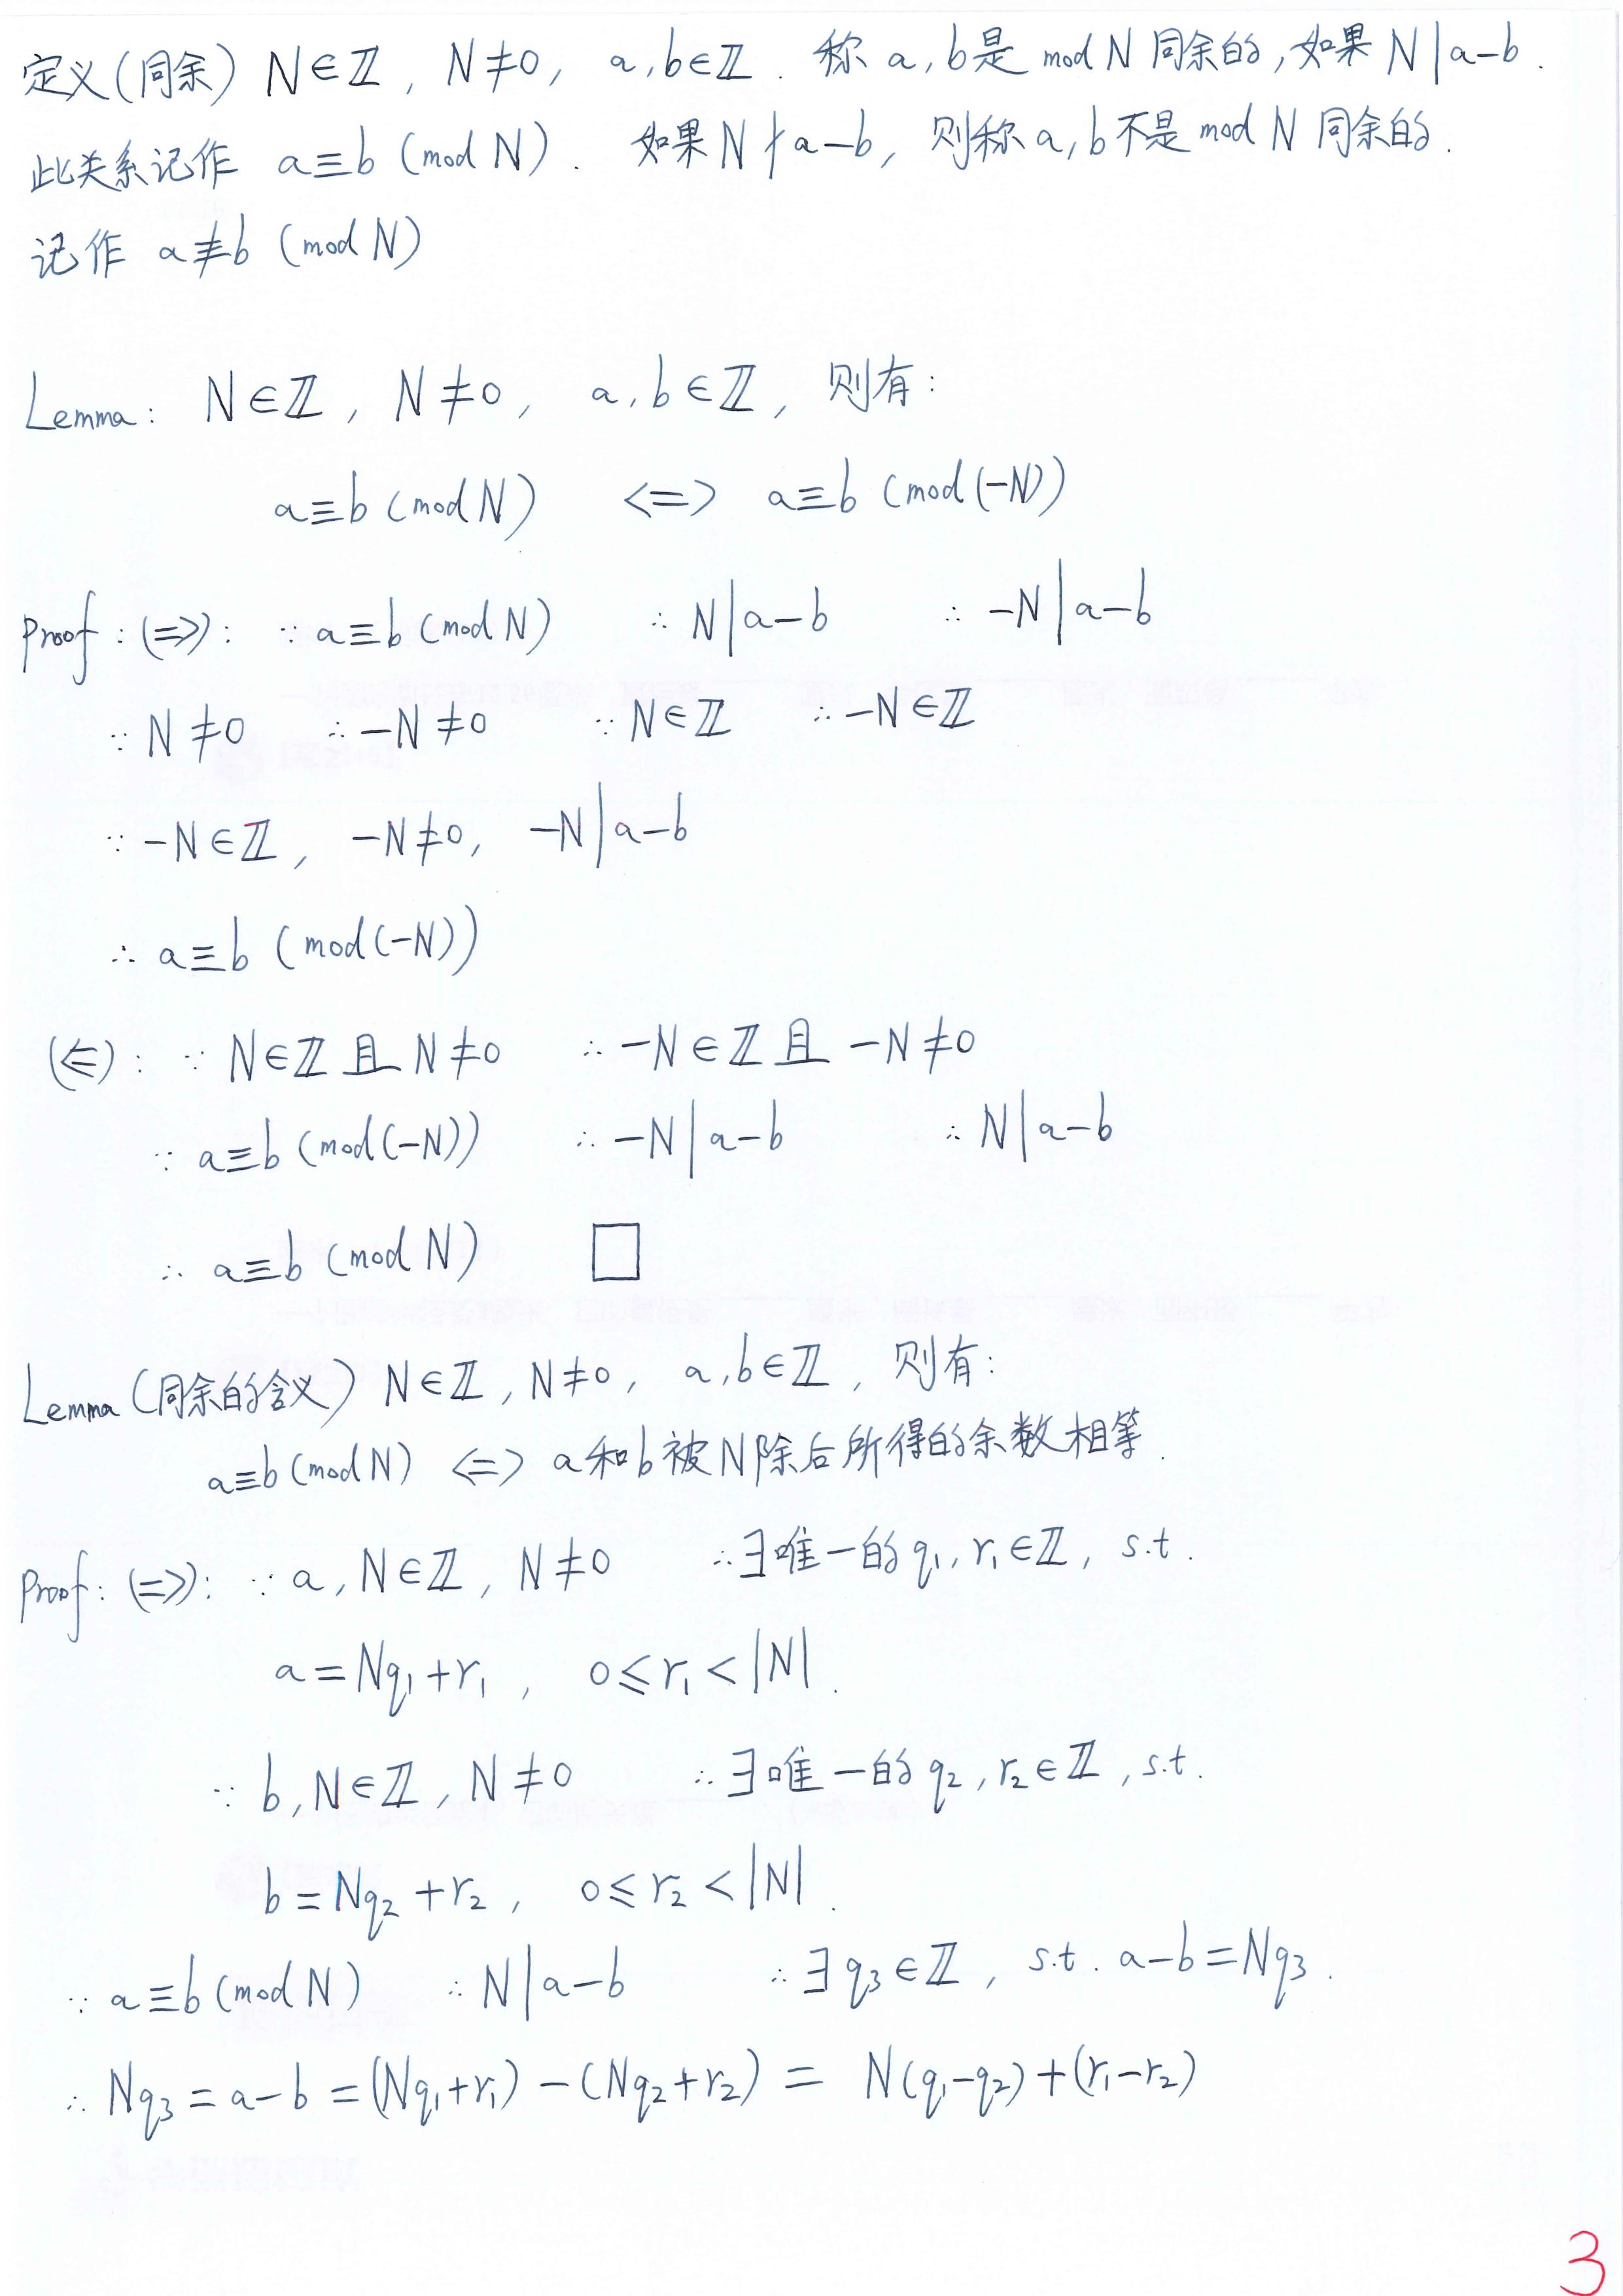 定义(同余) N∈ℤ, N≠0, a,b∈ℤ. 称 a,b是 mod N 同余的,如果 N|a-b.
此关系记作 a≡b (mod N). 如果 N∤a-b, 则称 a,b 不是 mod N 同余的.
记作 a≢b (mod N)
Lemma: N∈ℤ, N≠0, a,b∈ℤ, 则有:
a≡b (mod N) <=> a≡b (mod(-N))
Proof: (=>): ∵ a≡b (mod N) ∴ N|a-b ∴ -N|a-b
∵ N≠0 ∴ -N≠0 ∵ N∈ℤ ∴ -N∈ℤ
∵ -N∈ℤ, -N≠0, -N|a-b
∴ a≡b (mod(-N))
(<=): ∵ N∈ℤ 且 N≠0 ∴ -N∈ℤ 且 -N≠0
∵ a≡b (mod(-N)) ∴ -N|a-b ∴ N|a-b
∴ a≡b (mod N) □
Lemma (同余的含义) N∈ℤ, N≠0, a,b∈ℤ, 则有:
a≡b (mod N) <=> a和b被N除后所得的余数相等.
Proof: (=>): ∵ a,N∈ℤ, N≠0 ∴ ∃唯一的 q₁,r₁∈ℤ, s.t.
a=Nq₁+r₁, 0≤r₁<|N|.
∵ b,N∈ℤ, N≠0 ∴ ∃唯一的 q₂,r₂∈ℤ, s.t.
b=Nq₂+r₂, 0≤r₂<|N|.
∵ a≡b (mod N) ∴ N|a-b ∴ ∃ q₃∈ℤ, s.t. a-b=Nq₃.
∴ Nq₃=a-b=(Nq₁+r₁)-(Nq₂+r₂)= N(q₁-q₂)+(r₁-r₂)
3